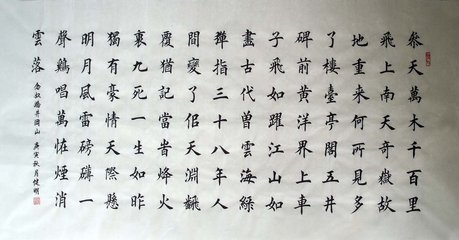 叅天萬木千百里
飛上南天奇嶽故
地重來何所見多
了樓臺亭閣五井
碑前黄洋界上車
子飛如躍江山如
畫古代曾雲海綠
彈指三十八年人
間變了佀天淵飜
覆猶記當旹烽火
裏九死一生如昨
獨有豪情天際懸
明月風雷磅礴一
聲鷄唱萬恠煙消
雲落
念奴嬌井岡山 庚寅秋月健明